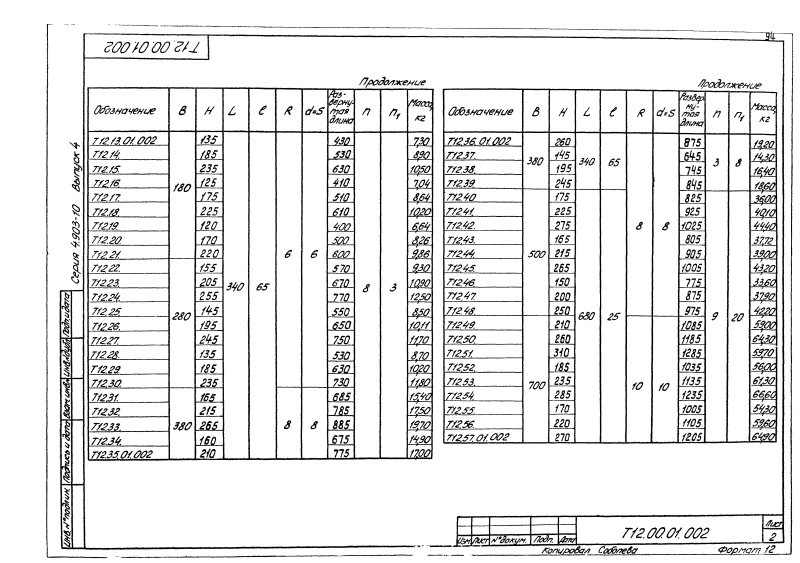 94
Т12.00.01.002
Серия 4.903-10 Выпуск 4
Продолжение
Обозначение В Н L ℓ R d=S Развернутая длина n n₁ Масса, кг
Т12.13.01.002 180 135 340 65 6 6 430 8 3 7,30
Т12.14. 185 530 8,90
Т12.15. 235 630 10,50
Т12.16. 125 410 7,04
Т12.17. 175 510 8,64
Т12.18. 225 610 10,20
Т12.19. 120 400 6,64
Т12.20. 170 500 8,26
Т12.21. 220 600 9,86
Т12.22. 280 155 570 9,30
Т12.23. 205 670 10,90
Т12.24. 255 770 12,50
Т12.25. 145 550 8,50
Т12.26. 195 650 10,11
Т12.27. 245 750 11,70
Т12.28. 135 530 8,70
Т12.29 185 630 10,20
Т12.30. 235 730 11,80
Т12.31. 380 165 8 8 685 15,40
Т12.32 215 785 17,50
Т12.33. 265 885 19,70
Т12.34. 160 675 14,90
Т12.35.01.002 210 775 17,00
Продолжение
Обозначение В Н L ℓ R d=S Развернутая длина n n₁ Масса, кг
Т12.36.01.002 380 260 340 65 8 8 875 3 8 19,20
Т12.37. 145 645 14,30
Т12.38. 195 745 16,40
Т12.39. 245 845 18,60
Т12.40 500 175 680 25 825 9 20 36,00
Т12.41. 225 925 40,10
Т12.42. 275 1025 44,40
Т12.43. 165 805 37,72
Т12.44. 215 905 39,00
Т12.45. 265 1005 43,20
Т12.46. 150 775 33,60
Т12.47. 200 875 37,90
Т12.48. 250 975 42,20
Т12.49. 700 210 10 10 1085 59,00
Т12.50. 260 1185 64,30
Т12.51. 310 1285 59,70
Т12.52. 185 1035 56,00
Т12.53. 235 1135 61,30
Т12.54. 285 1235 66,60
Т12.55. 170 1005 54,30
Т12.56. 220 1105 59,60
Т12.57.01.002 270 1205 64,90
Инв.№подлин. Подпись и дата Взам.инв.№ Инв.№дубл. Подп.и дата
Изм. Лист №докум. Подп. Дата
Т12.00.01.002
Лист
2
Копировал Соболева Формат 12